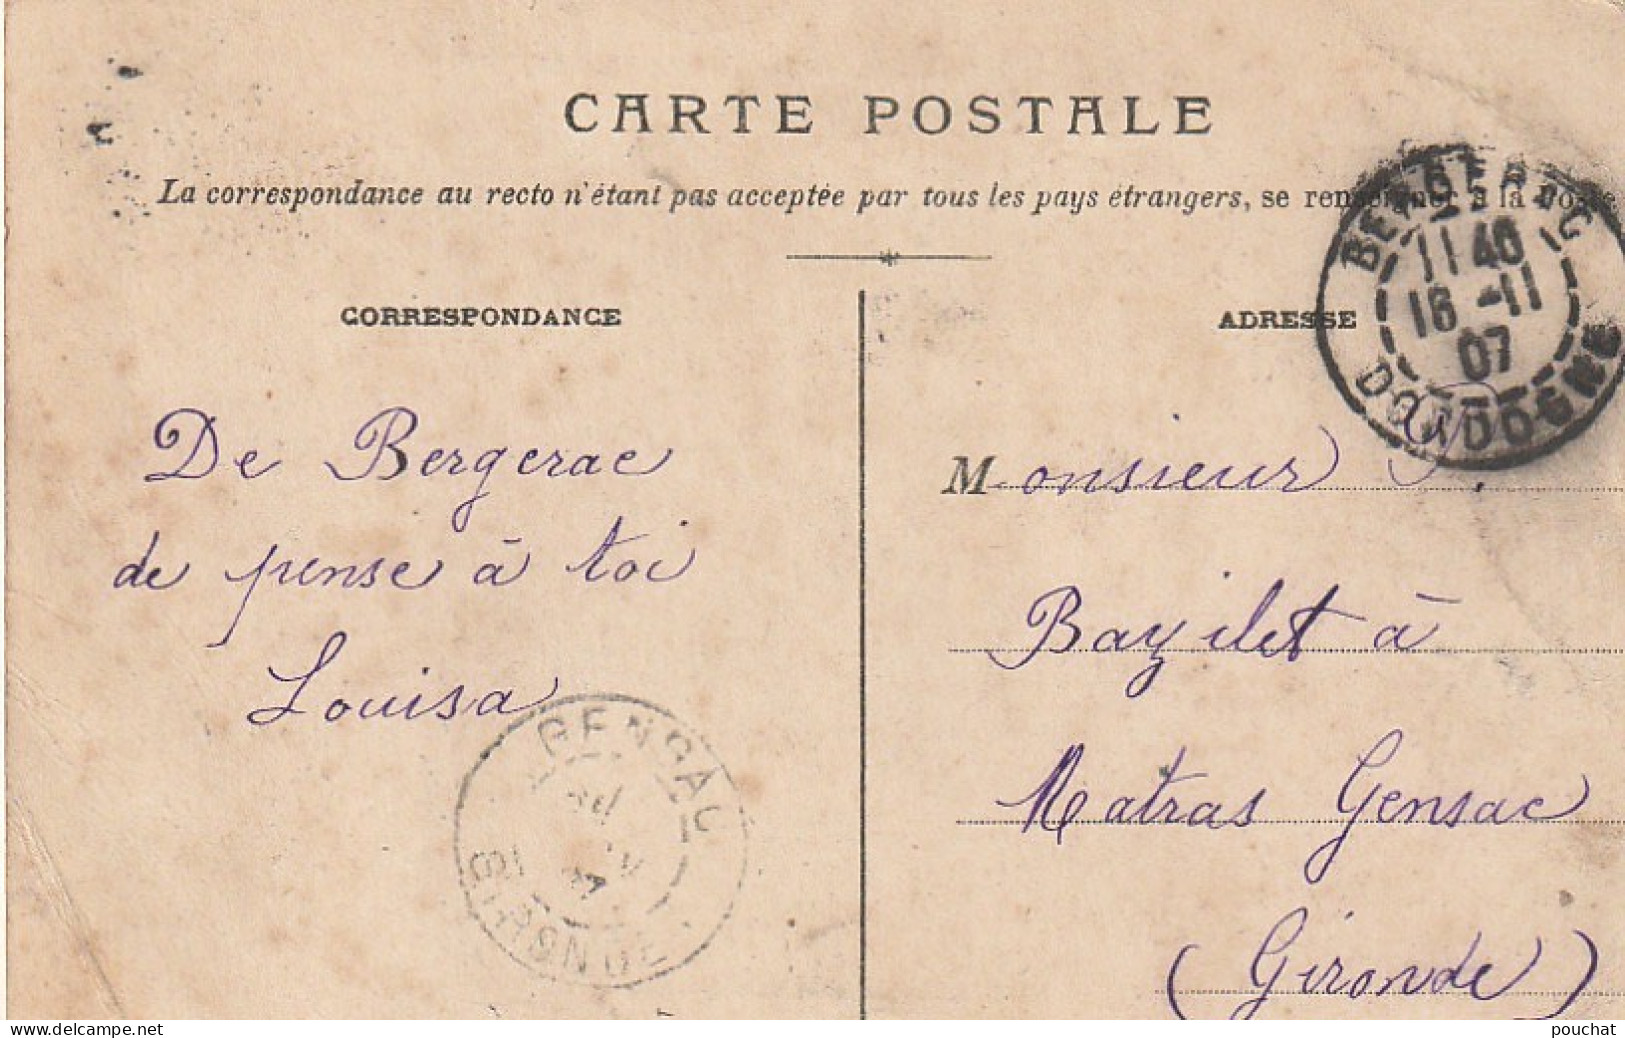 CARTE POSTALE
La correspondance au recto n'étant pas acceptée par tous les pays étrangers, se renseigner à la Poste
CORRESPONDANCE
ADRESSE
BERGERAC
11 40
16 -11
07
DORDOGNE
De Bergerac
de pense à toi
Louisa
Monsieur
Bazilet à
Matras Gensac
(Gironde)
GENSAC
GIRONDE
www.delcampe.net
pouchat